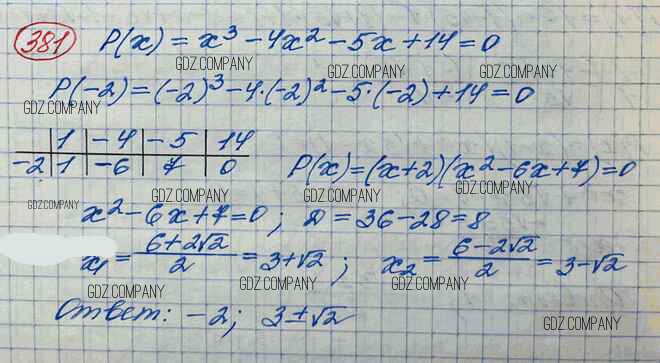 381 P(x) = x³ - 4x² - 5x + 14 = 0
GDZ.COMPANY GDZ.COMPANY GDZ.COMPANY
P(-2) = (-2)³ - 4·(-2)² - 5·(-2) + 14 = 0
GDZ.COMPANY
1 -4 -5 14
-2 1 -6 7 0 P(x) = (x+2)(x² - 6x + 7) = 0
GDZ.COMPANY GDZ.COMPANY GDZ.COMPANY GDZ.COMPANY
x² - 6x + 7 = 0; D = 36 - 28 = 8
x₁ = (6+2√2)/2 = 3+√2; x₂ = (6-2√2)/2 = 3-√2
GDZ.COMPANY GDZ.COMPANY GDZ.COMPANY
Ответ: -2; 3±√2
GDZ.COMPANY